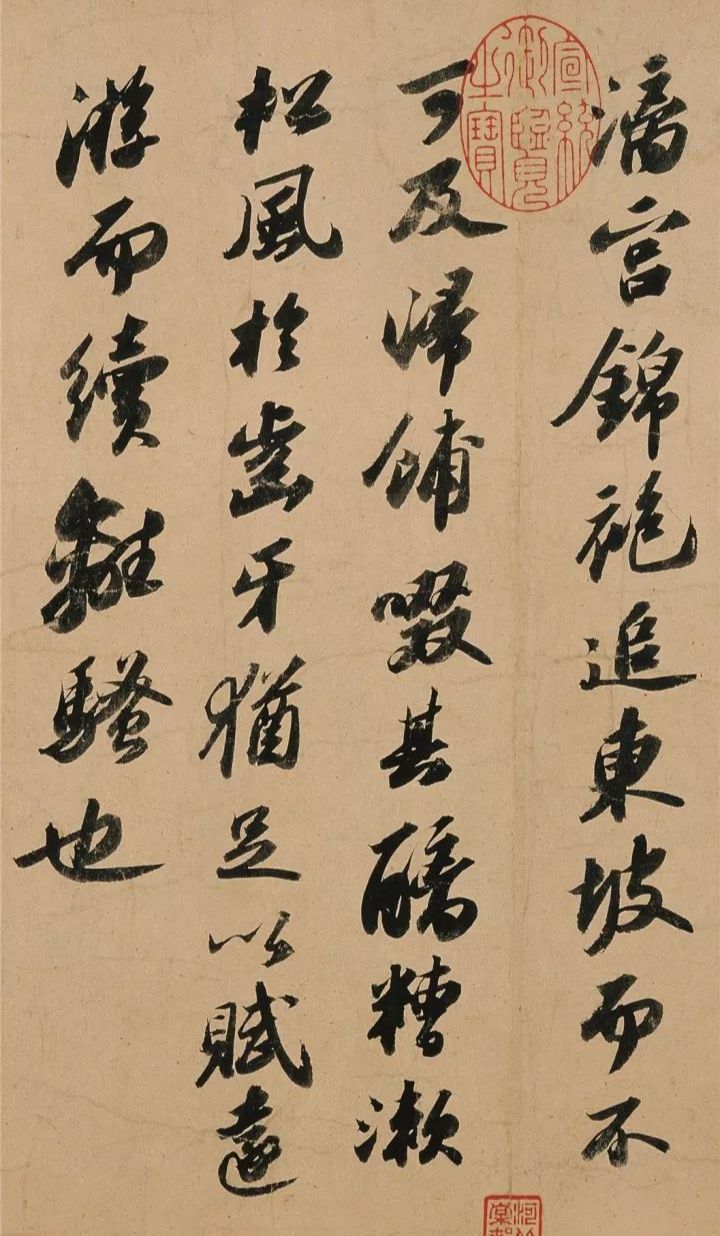 漓宮錦袍追東坡而不
可及歸餔啜其醨糟漱
松風於齒牙猶足以賦遠
游而續離騷也
宣統
御覽
之寶